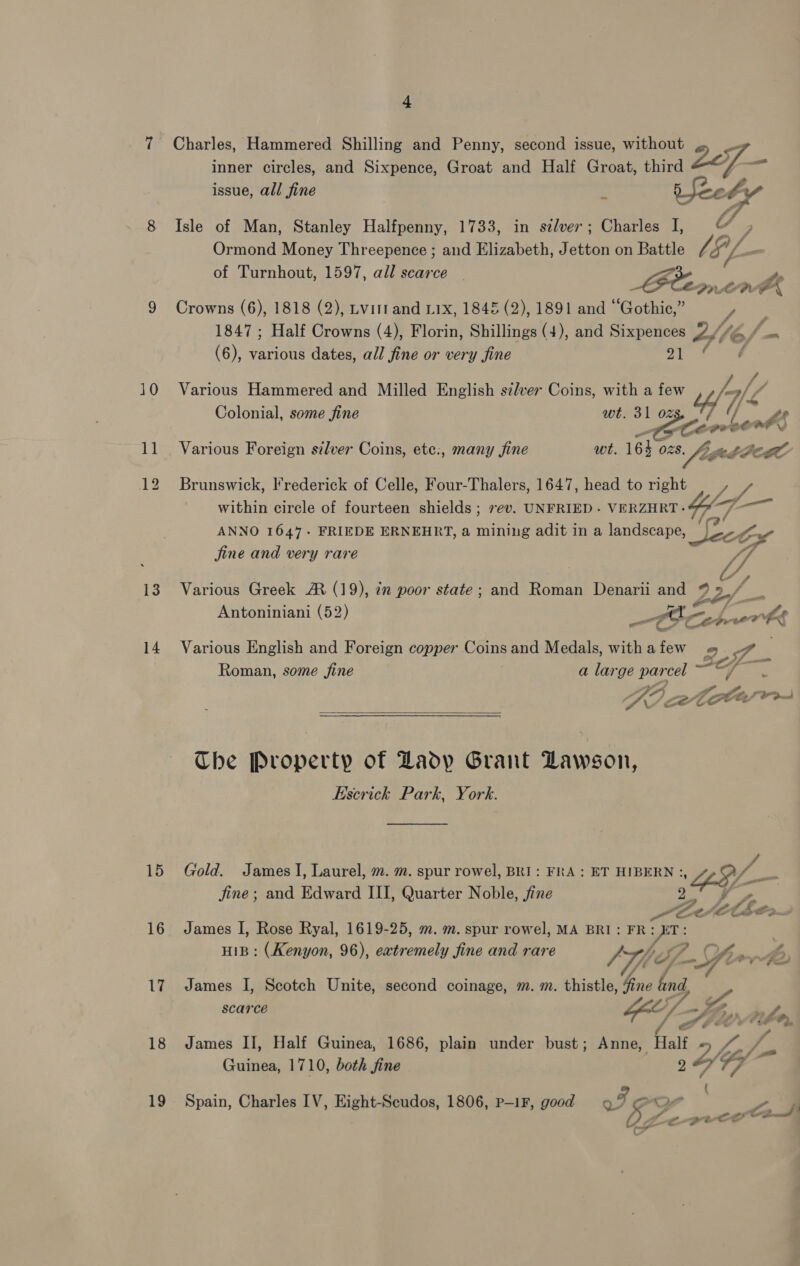 4
7 Charles, Hammered Shilling and Penny, second issue, without
inner circles, and Sixpence, Groat and Half Groat, third
issue, all fine 5
8 Isle of Man, Stanley Halfpenny, 1733, in silver; Charles I,
Ormond Money Threepence; and Elizabeth, Jetton on Battle
of Turnhout, 1597, all scarce
9 Crowns (6), 1818 (2), LVIII and LIX, 1845 (2), 1891 and "Gothic,"
1847; Half Crowns (4), Florin, Shillings (4), and Sixpences
(6), various dates, all fine or very fine 21
10 Various Hammered and Milled English silver Coins, with a few
Colonial, some fine wt. 31 ozs.
11 Various Foreign silver Coins, etc., many fine wt. 16½ ozs.
12 Brunswick, Frederick of Celle, Four-Thalers, 1647, head to right
within circle of fourteen shields; rev. UNFRIED · VERZHRT ·
ANNO 1647 · FRIEDE ERNEHRT, a mining adit in a landscape,
fine and very rare
13 Various Greek Æ (19), in poor state; and Roman Denarii and
Antoniniani (52)
14 Various English and Foreign copper Coins and Medals, with a few
Roman, some fine a large parcel
The Property of Lady Grant Lawson,
Escrick Park, York.
15 Gold. James I, Laurel, m. m. spur rowel, BRI : FRA : ET HIBERN :,
fine; and Edward III, Quarter Noble, fine 2
16 James I, Rose Ryal, 1619-25, m. m. spur rowel, MA BRI : FR : ET :
HIB : (Kenyon, 96), extremely fine and rare
17 James I, Scotch Unite, second coinage, m. m. thistle, fine and
scarce
18 James II, Half Guinea, 1686, plain under bust; Anne, Half
Guinea, 1710, both fine 2
19 Spain, Charles IV, Eight-Scudos, 1806, P–IF, good